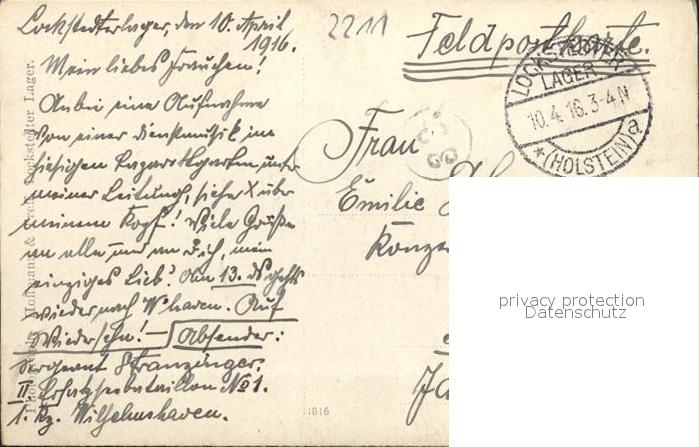 Lockstedterlager, den 10. April
1916.
Mein liebes Frauchen!
Anbei eine Aufnahme
von einer Dienstmusik im
hiesigen Lazarettgarten unter
meiner Leitung, siehe X über
meinem Kopf! Viele Grüße
an alle und an Dich, mein
einziges Lieb! Am 13. ds gehts
wieder nach W'haven. Auf
Wiedersehn! — Absender:
Sergeant Stranzinger,
II. Ersatzseebataillon No 1.
1. Kp. Wilhelmshaven.
2211
Feldpostkarte.
LOCKSTEDTER
LAGER
10.4.16.3-4N
*(HOLSTEIN)a
Frau
Emilie
Konze
Hoffmann & Lockstedter Lager.
1816
privacy protection
Datenschutz